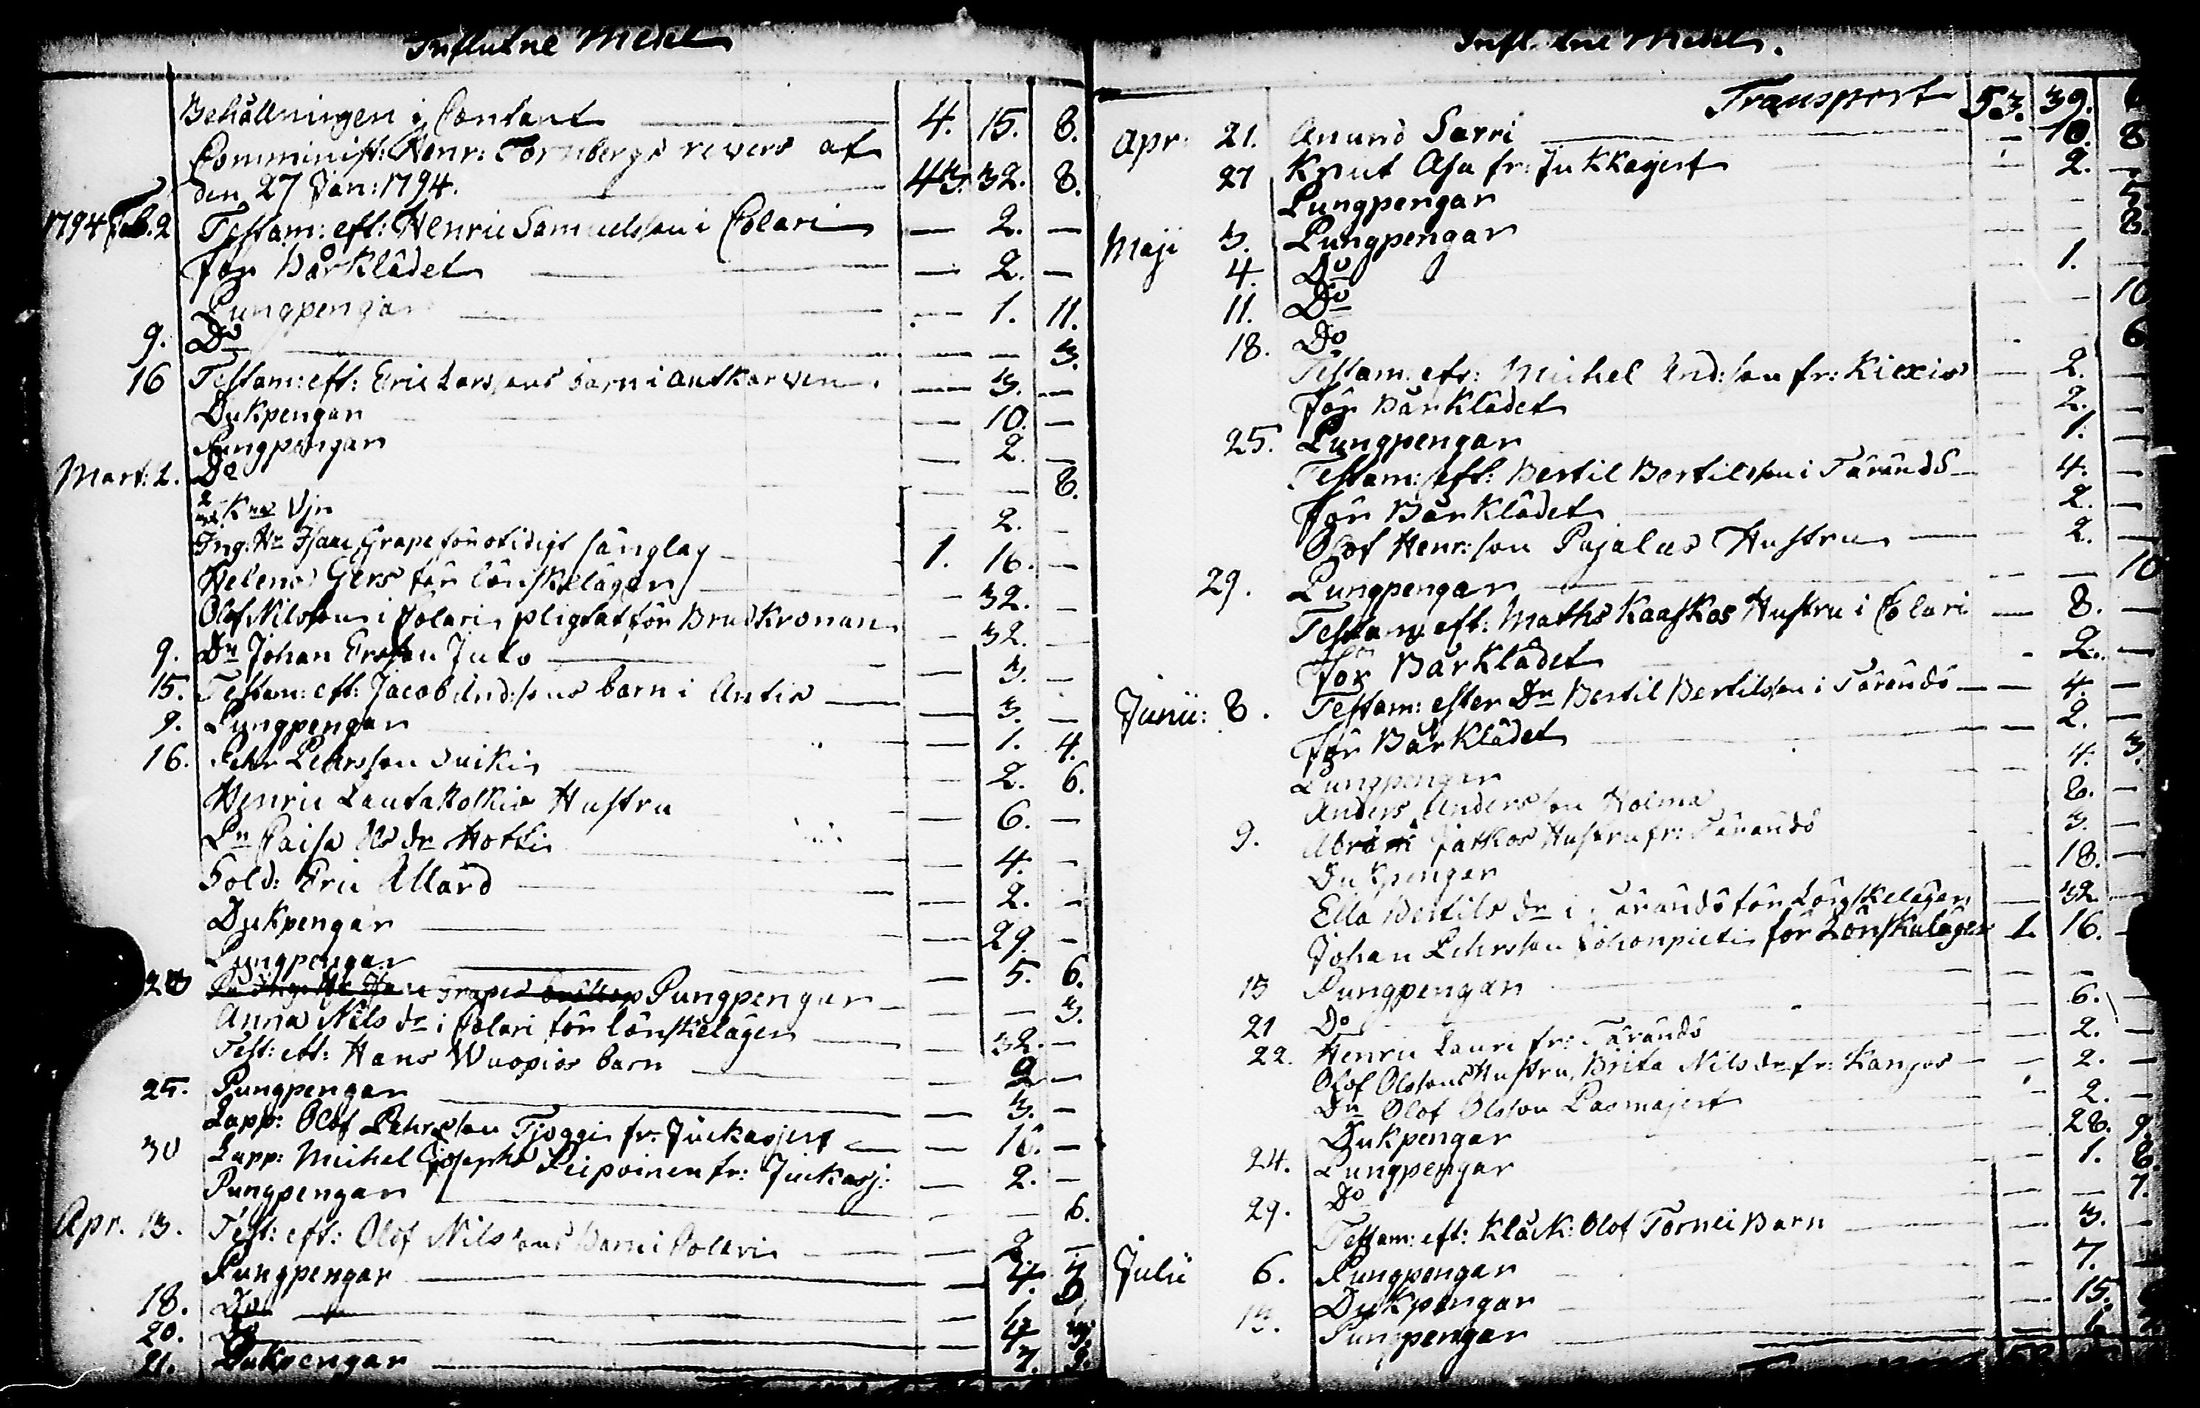 Influtne Medel
Behållningen i Contant 4. 15. 8.
Comminist: Henr: Fornbergs revers af
den 27 Jan: 1794. 43. 32. 8.
1794 Feb. 2 Testam: eft: Henric Samuelsson i Colari — 2. —
för Bårklädet — 2. —
Pungpengar — 1. 11.
9. Do — — 3.
16 Testam: eft: Eric Larssons barn i Autkarven — 3. —
Dukpengar 10. —
Pungpengar — 2. —
Mart: 2. Do — — 8.
2. —
Ing: Hr Isaac Grape för otidigt sänglag 1. 16. —
Helena Gers för lönskeläger — 32. —
Olof Nilsson i Colari pligtat för Brudkronan — 32. —
9. Dn Johan Ersson Juto — 3. —
15. Testam: eft: Jacob And:sons barn i Antis — 3. —
9. Pungpengar — 1. 4.
16. Pehr Pehrsson Suikis — 2. 6.
Henric Lautakoskis Hustru — 6. —
Pn Caisa Ns dr Hotti — 4. —
Sold: Eric Allard — 2. —
Dukpengar — 29. —
Pungpengar — 5. 6.
Pungpengar — — 3.
Anna Nils dr i Colari för lönskeläger — 32. —
Test: eft: Hans Wuopios barn — 2 —
25. Pungpengar — 3. —
Lapp: Olof Pehrsson Tjoggi fr: Juckasjerf — 16. —
30 Lapp: Michel Josephs Peipoinen fr: Juckasj: — 2. —
Pungpengar — — 6.
Apr. 13. Test: eft: Olof Nilssons Barn i Colari — 2 —
Pungpengar — 4.
18. Do
20. Do
21. Dukpengar — 7. 9.
Influtne Medel.
Transport 53. 39. 6
Apr: 21. Anund Sarri — 10. 8
27 Knut Asa fr: Jukkasjerf — 2. —
Pungpengar — — 5.
Maji 3. Pungpengar — — 8.
4. Do — 1. —
11. Do — — 10
18. Do — — 6
Testam: eft: Michel And:son fr: Kiexis — 2. —
för Bårklädet 2. —
25. Pungpengar — 1. —
Testam: eft: Bertil Bertilsson i Tärändö — 4. —
för Bårklädet — 2. —
Olof Henr:son Pajalas Hustru — 2. —
29. Pungpengar — — 10
Testam: eft: Maths Kaaskos Hustru i Colari — 8. —
för Bårklädet — 2. —
Junii: 8. Testam: efter Dn Bertil Bertilsson i Tärändö — 4. —
för Bårklädet — 2. —
Pungpengar 4. 3.
Anders Andersson Hoima 8. —
9. Abram Jatkos Hustru fr: Tärändö 3. —
Dukpengar — 18. —
Ella Bertils dr i Tärändö för Lönskeläger — 32 —
Johan Pehrsson Johonpieti för Lönskaläger 1. 16. —
15 Pungpengar — —
21 Do — 6. —
22. Henric Lauri fr: Tärändö — 2. —
Olof Olssons Hustru, Brita Nils dr fr: Kangos — 2. —
Dn Olof Olsson Pasmajerf 2. —
Dukpengar 28. 9.
24. Pungpengar 1. 8.
29. Do — — 7.
Testam: eft: Klåck: Olof Tornei Barn — 3. —
Julii 6. Pungpengar — 7. —
Dukpengar — 15.
13. Pungpengar